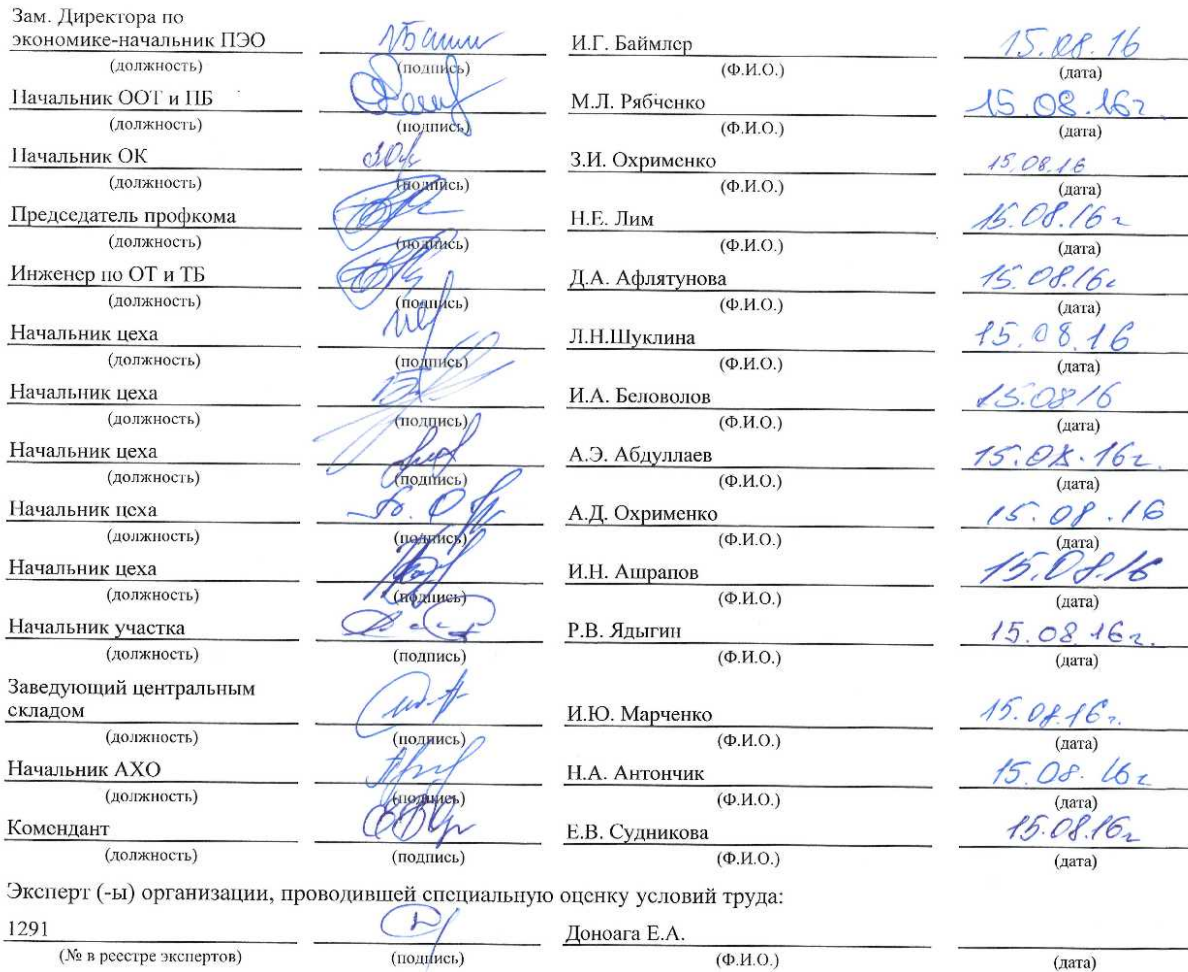 Зам. Директора по
экономике-начальник ПЭО И.Г. Баймлер 15.08.16
(должность) (подпись) (Ф.И.О.) (дата)
Начальник ООТ и ПБ М.Л. Рябченко 15.08.16г
(должность) (подпись) (Ф.И.О.) (дата)
Начальник ОК З.И. Охрименко 15.08.16
(должность) (подпись) (Ф.И.О.) (дата)
Председатель профкома Н.Е. Лим 15.08.16г
(должность) (подпись) (Ф.И.О.) (дата)
Инженер по ОТ и ТБ Д.А. Афлятунова 15.08.16г
(должность) (подпись) (Ф.И.О.) (дата)
Начальник цеха Л.Н.Шуклина 15.08.16
(должность) (подпись) (Ф.И.О.) (дата)
Начальник цеха И.А. Беловолов 15.08 16
(должность) (подпись) (Ф.И.О.) (дата)
Начальник цеха А.Э. Абдуллаев 15.08.16г.
(должность) (подпись) (Ф.И.О.) (дата)
Начальник цеха А.Д. Охрименко 15.08.16
(должность) (подпись) (Ф.И.О.) (дата)
Начальник цеха И.Н. Ашрапов 15.08.16
(должность) (подпись) (Ф.И.О.) (дата)
Начальник участка Р.В. Ядыгин 15.08.16г.
(должность) (подпись) (Ф.И.О.) (дата)
Заведующий центральным
складом И.Ю. Марченко 15.08.16г.
(должность) (подпись) (Ф.И.О.) (дата)
Начальник АХО Н.А. Антончик 15.08.16г
(должность) (подпись) (Ф.И.О.) (дата)
Комендант Е.В. Судникова 15.08.16г
(должность) (подпись) (Ф.И.О.) (дата)
Эксперт (-ы) организации, проводившей специальную оценку условий труда:
1291 Доноага Е.А.
(№ в реестре экспертов) (подпись) (Ф.И.О.) (дата)